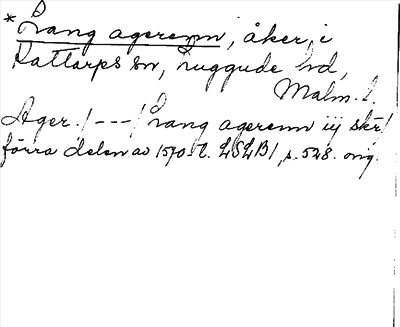 *Lang agerenn, åker, i
Kattarps sn, Luggude hd,
Malm. l.
Ager. /---/ Lang agerenn iij skr/
förra delen av 1570-t. LSLB1, s. 528. orig.